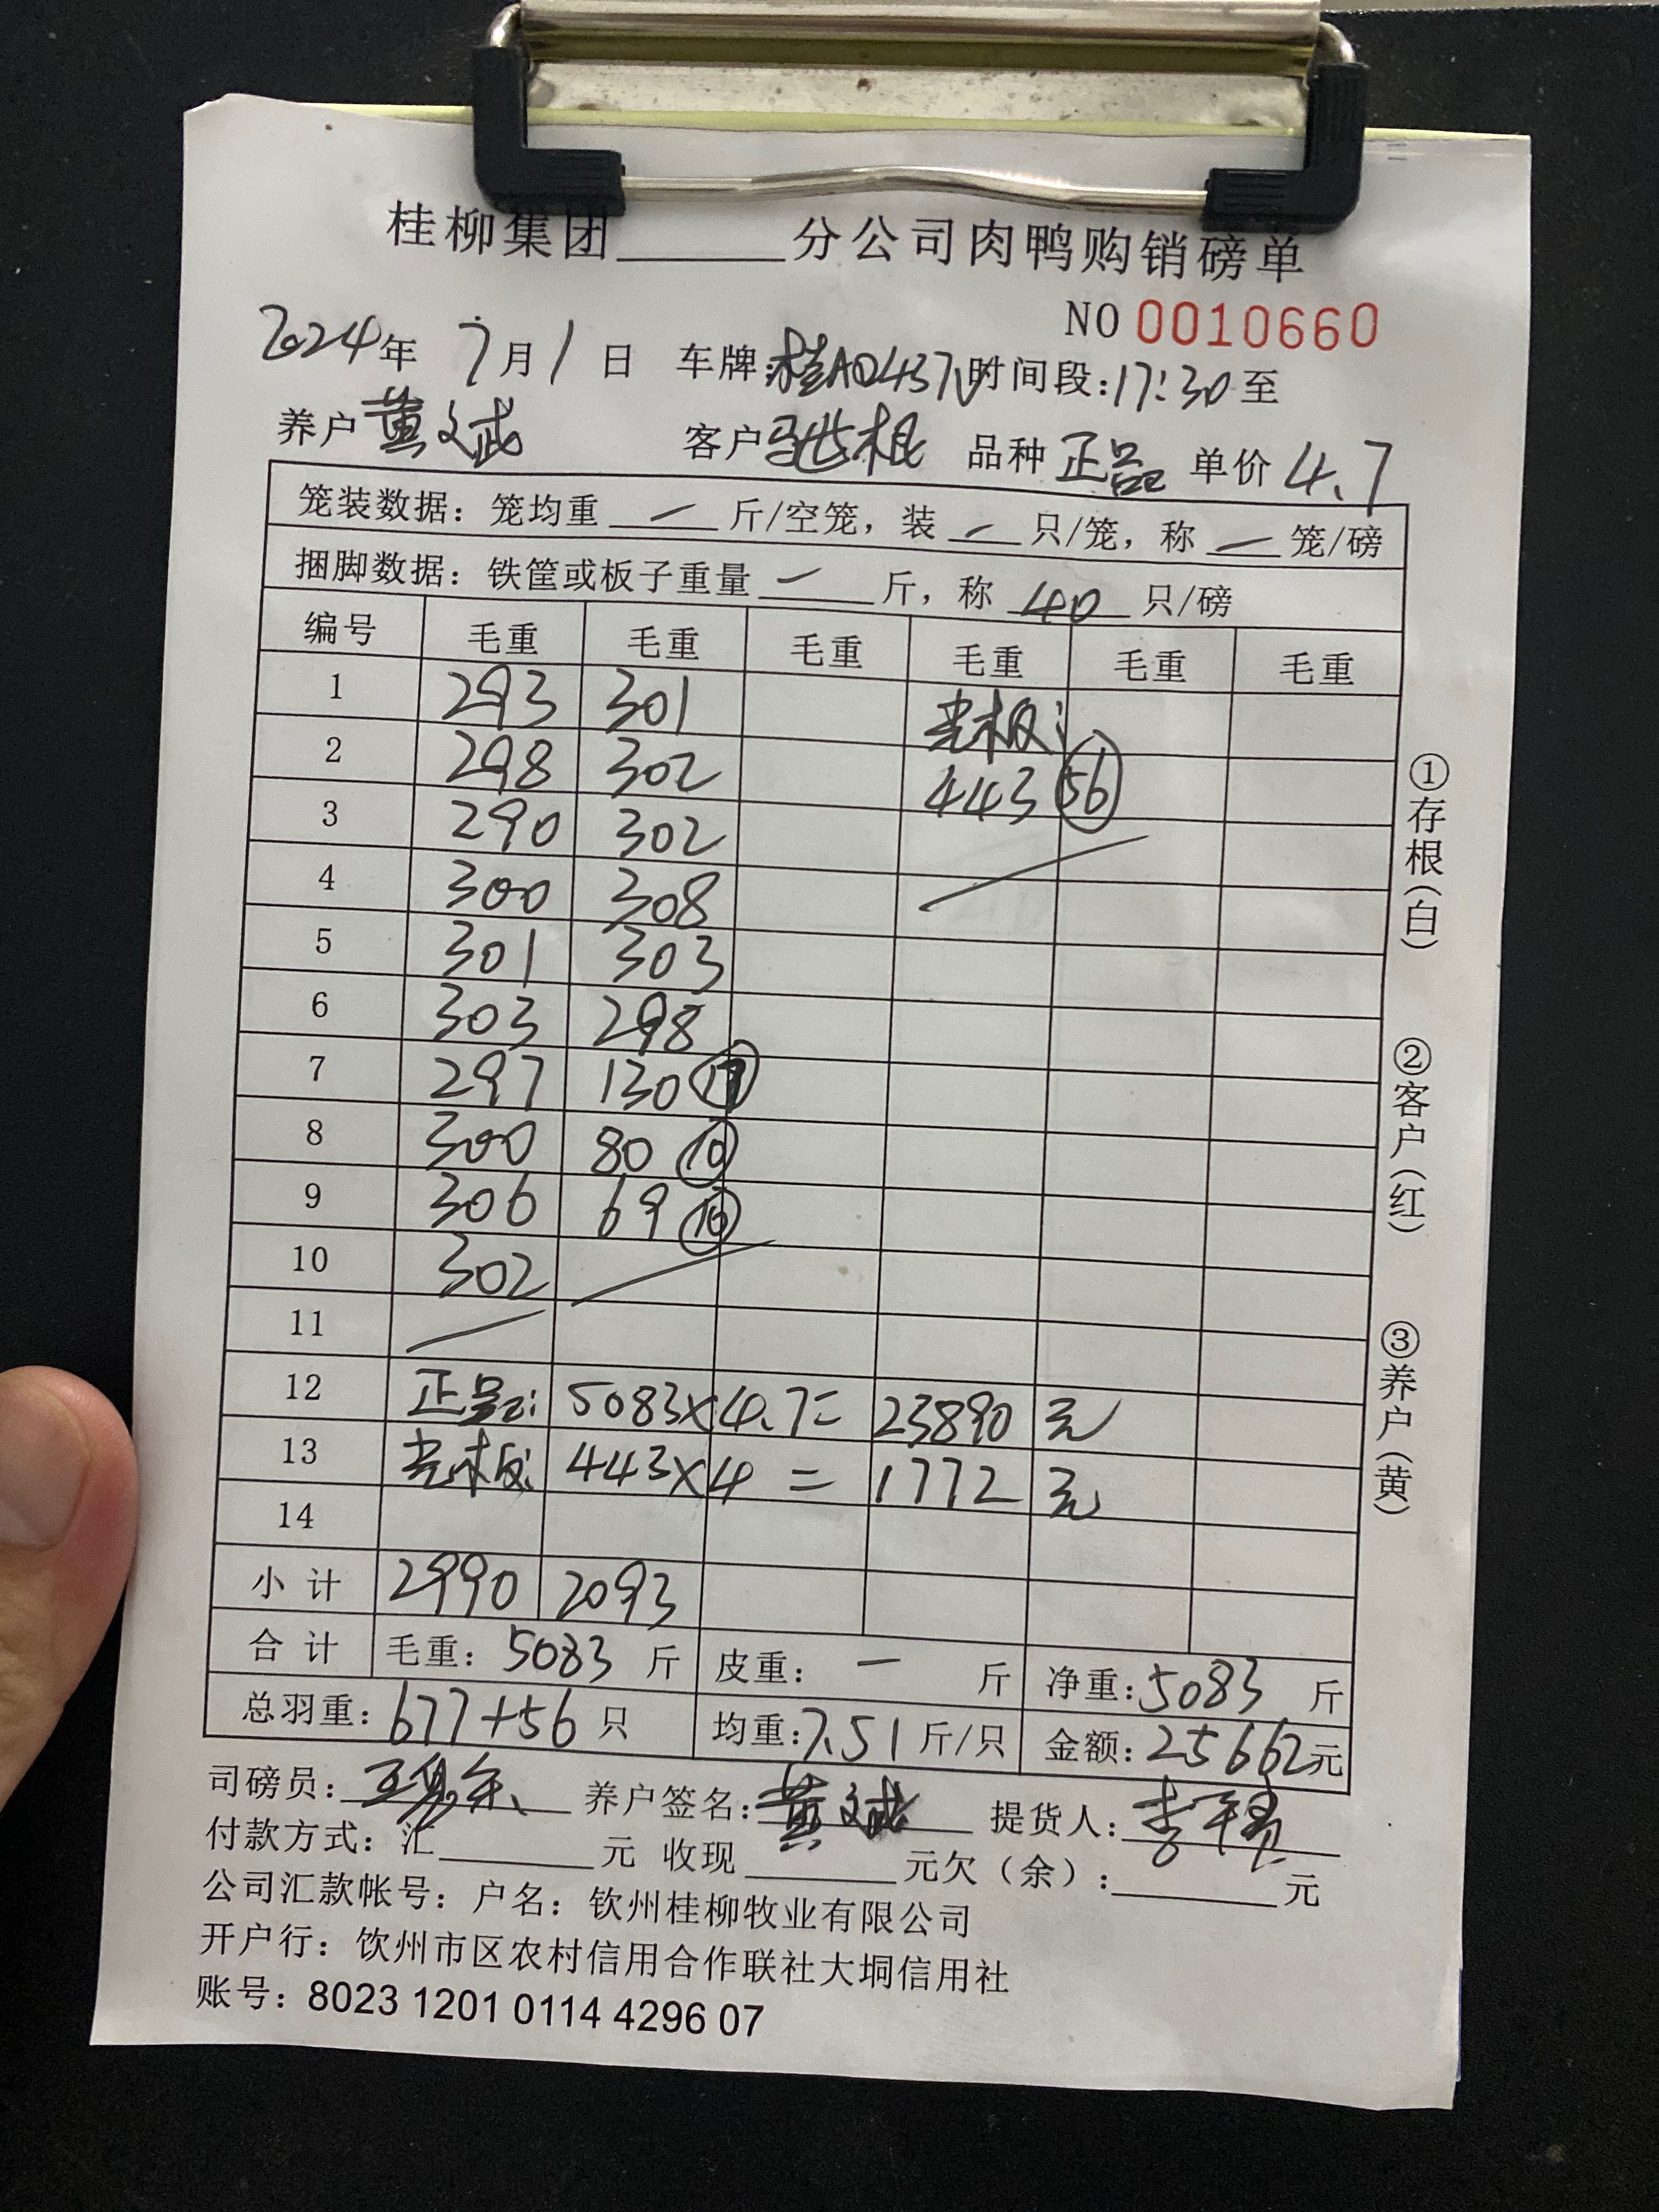 桂柳集团______分公司肉鸭购销磅单
NO 0010660
2024年 7月1日 车牌:桂A0437V 时间段:17:30至
养户 黄文武 客户 驰根 品种 正品 单价 4.7
笼装数据: 笼均重 — 斤/空笼, 装 — 只/笼, 称 — 笼/磅
捆脚数据: 铁筐或板子重量 — 斤, 称 40 只/磅
编号 毛重 毛重 毛重 毛重 毛重 毛重
1 293 301 光板:
2 298 302 443 56
3 290 302
4 300 308
5 301 303
6 303 298
7 297 130 17
8 300 80 10
9 306 69 10
10 302
11
12 正品: 5083×4.7= 23890 元
13 光板: 443×4 = 1772 元
14
小计 2990 2093
合计 毛重: 5083 斤 皮重: — 斤 净重: 5083 斤
总羽重: 677+56 只 均重: 7.51 斤/只 金额: 25662元
司磅员: 养户签名: 提货人:
付款方式: 汇______元 收现______元欠(余):______元
公司汇款帐号: 户名: 钦州桂柳牧业有限公司
开户行: 钦州市区农村信用合作联社大垌信用社
账号: 8023 1201 0114 4296 07
①存根(白)
②客户(红)
③养户(黄)